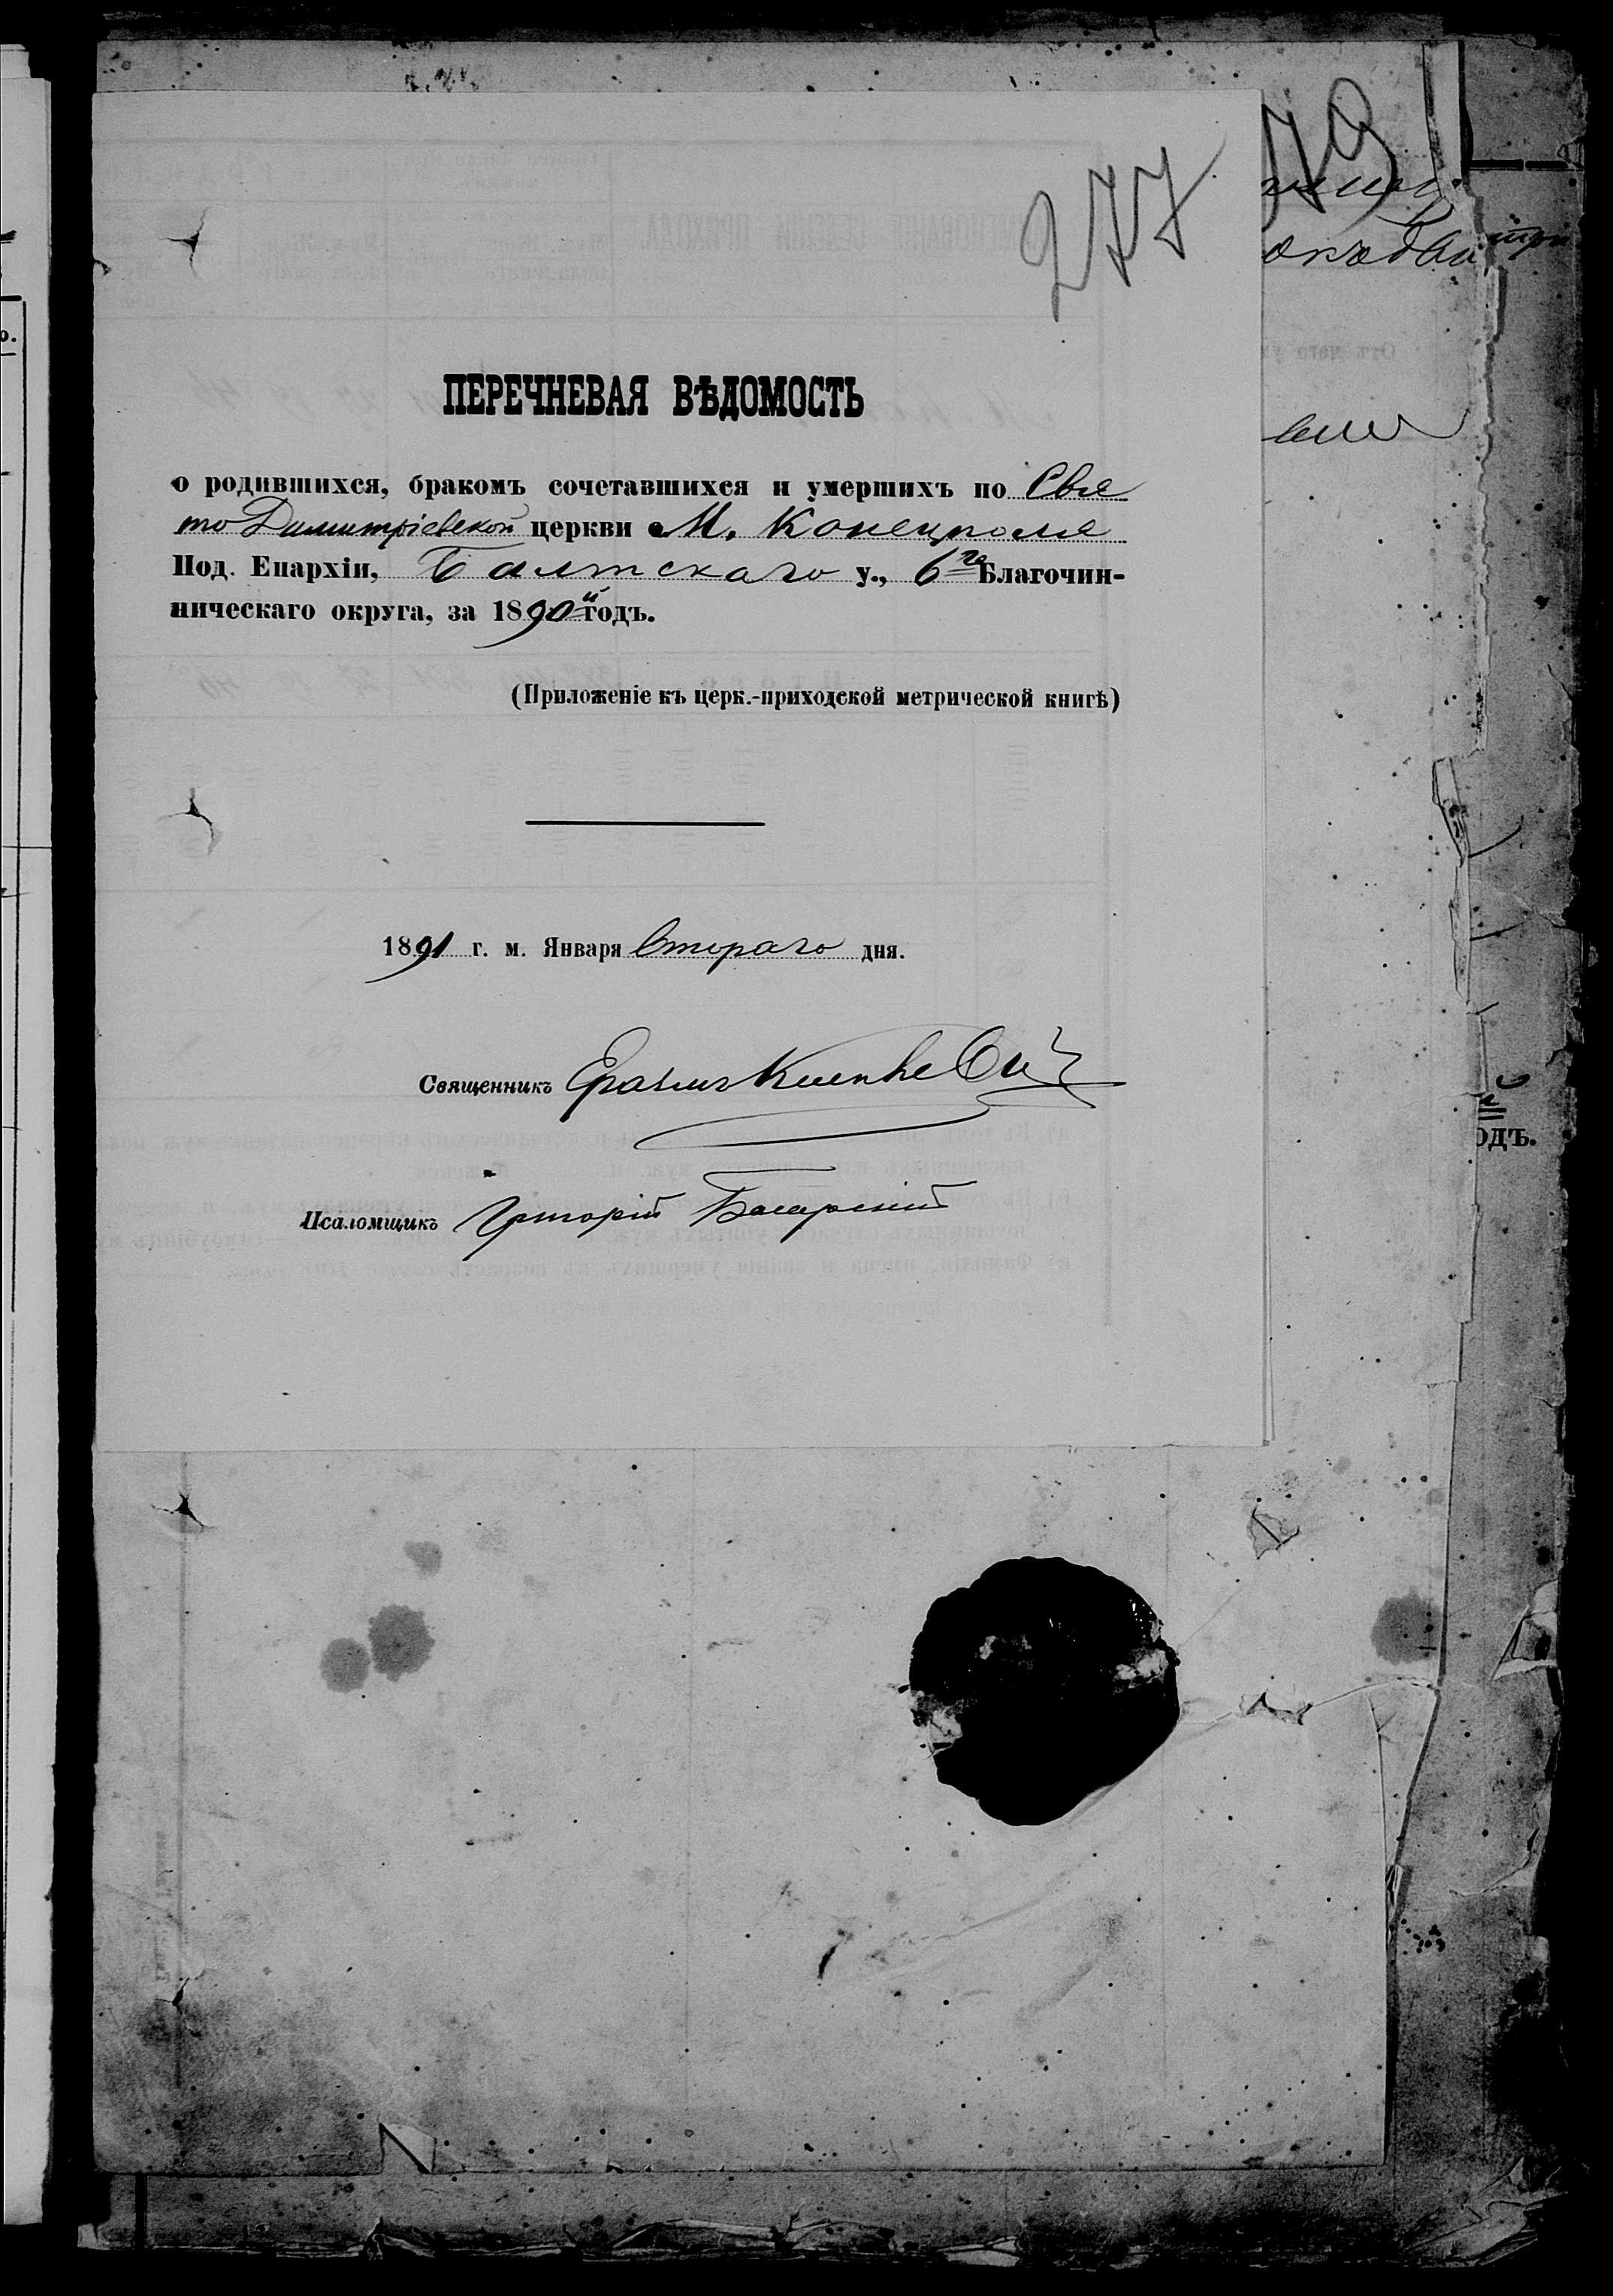 277
79
ПЕРЕЧНЕВАЯ ВѢДОМОСТЬ
о родившихся, бракомъ сочетавшихся и умершихъ по Свя
то Димитріевской церкви М. Конецполя
Под. Епархіи, Балтскаго у., 6го Благочин-
ническаго округа, за 1890й годъ.
(Приложеніе къ церк.-приходской метрической книгѣ)
1891 г. м. Января втораго дня.
Священникъ Еразмъ
Псаломщикъ Григорій
одъ.